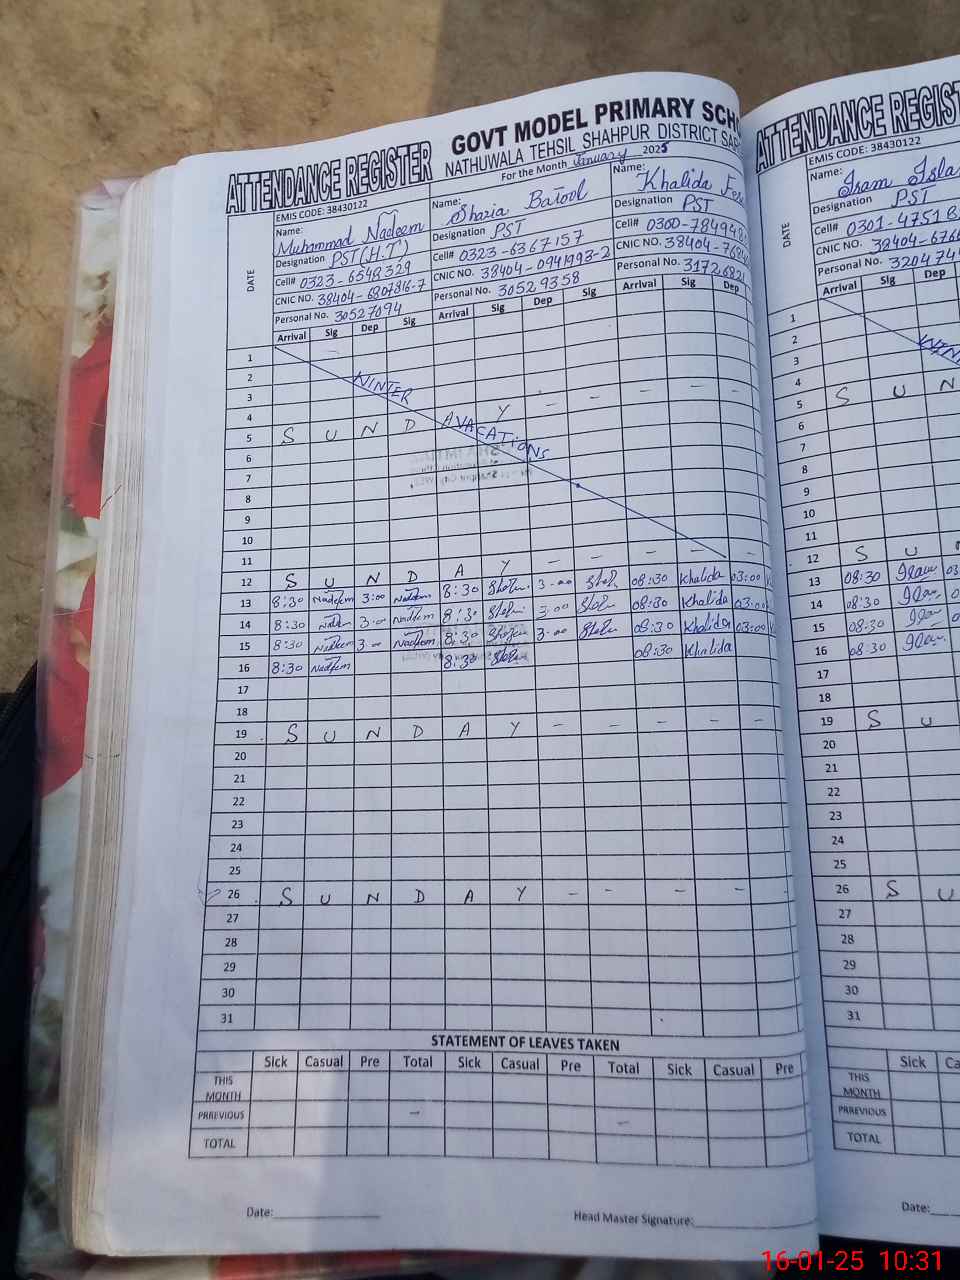 ATTENDANCE REGISTER
GOVT MODEL PRIMARY SCHO
NATHUWALA TEHSIL SHAHPUR DISTRICT SAR
For the Month January 2025
EMIS CODE: 38430122
DATE
Name: Muhammad Nadeem
Designation PST (H.T)
Cell# 0323-6548329
CNIC NO. 38404-6807816-7
Personal No. 30527094
Name: Sharia Batool
Designation PST
Cell# 0323-6367157
CNIC NO. 38404-0941993-2
Personal No. 30529358
Name: Khalida
Designation PST
Cell# 0300-78494
CNIC NO. 38404-768
Personal No. 3172682
Arrival Sig Dep Sig Arrival Sig Dep Sig Arrival Sig Dep
1
2
3
4
5 S U N D A Y - - - - -
WINTER AVACATIONS
6
7
8
9
10
11
12 S U N D A Y - - - - -
13 8:30 Nadeem 3:00 Nadeem 8:30 3-00 08:30 Khalida 03:00
14 8:30 Nadeem 3-00 Nadeem 8:30 3-00 08:30 Khalida 03:00
15 8:30 Nadeem 3-00 Nadeem 8:30 3-00 08:30 Khalida 03:00
16 8:30 Nadeem 8:30 08:30 Khalida
17
18
19 S U N D A Y - - - - -
20
21
22
23
24
25
26 S U N D A Y - - - - -
27
28
29
30
31
STATEMENT OF LEAVES TAKEN
Sick Casual Pre Total Sick Casual Pre Total Sick Casual Pre
THIS MONTH
PRREVIOUS - -
TOTAL
Date:
Head Master Signature:
ATTENDANCE REGIST
EMIS CODE: 38430122
DATE
Name: Iram Isla
Designation PST
Cell# 0301-4751
CNIC NO. 38404-676
Personal No. 320474
Arrival Sig Dep
1
2
3
WIN
4
5 S U N
6
7
8
9
10
11
12 S U
13 08:30 Iram 03
14 08:30 Iram
15 08:30 Iram
16 08:30 Iram
17
18
19 S U
20
21
22
23
24
25
26 S U
27
28
29
30
31
Sick Ca
THIS MONTH
PRREVIOUS
TOTAL
Date:
16-01-25 10:31